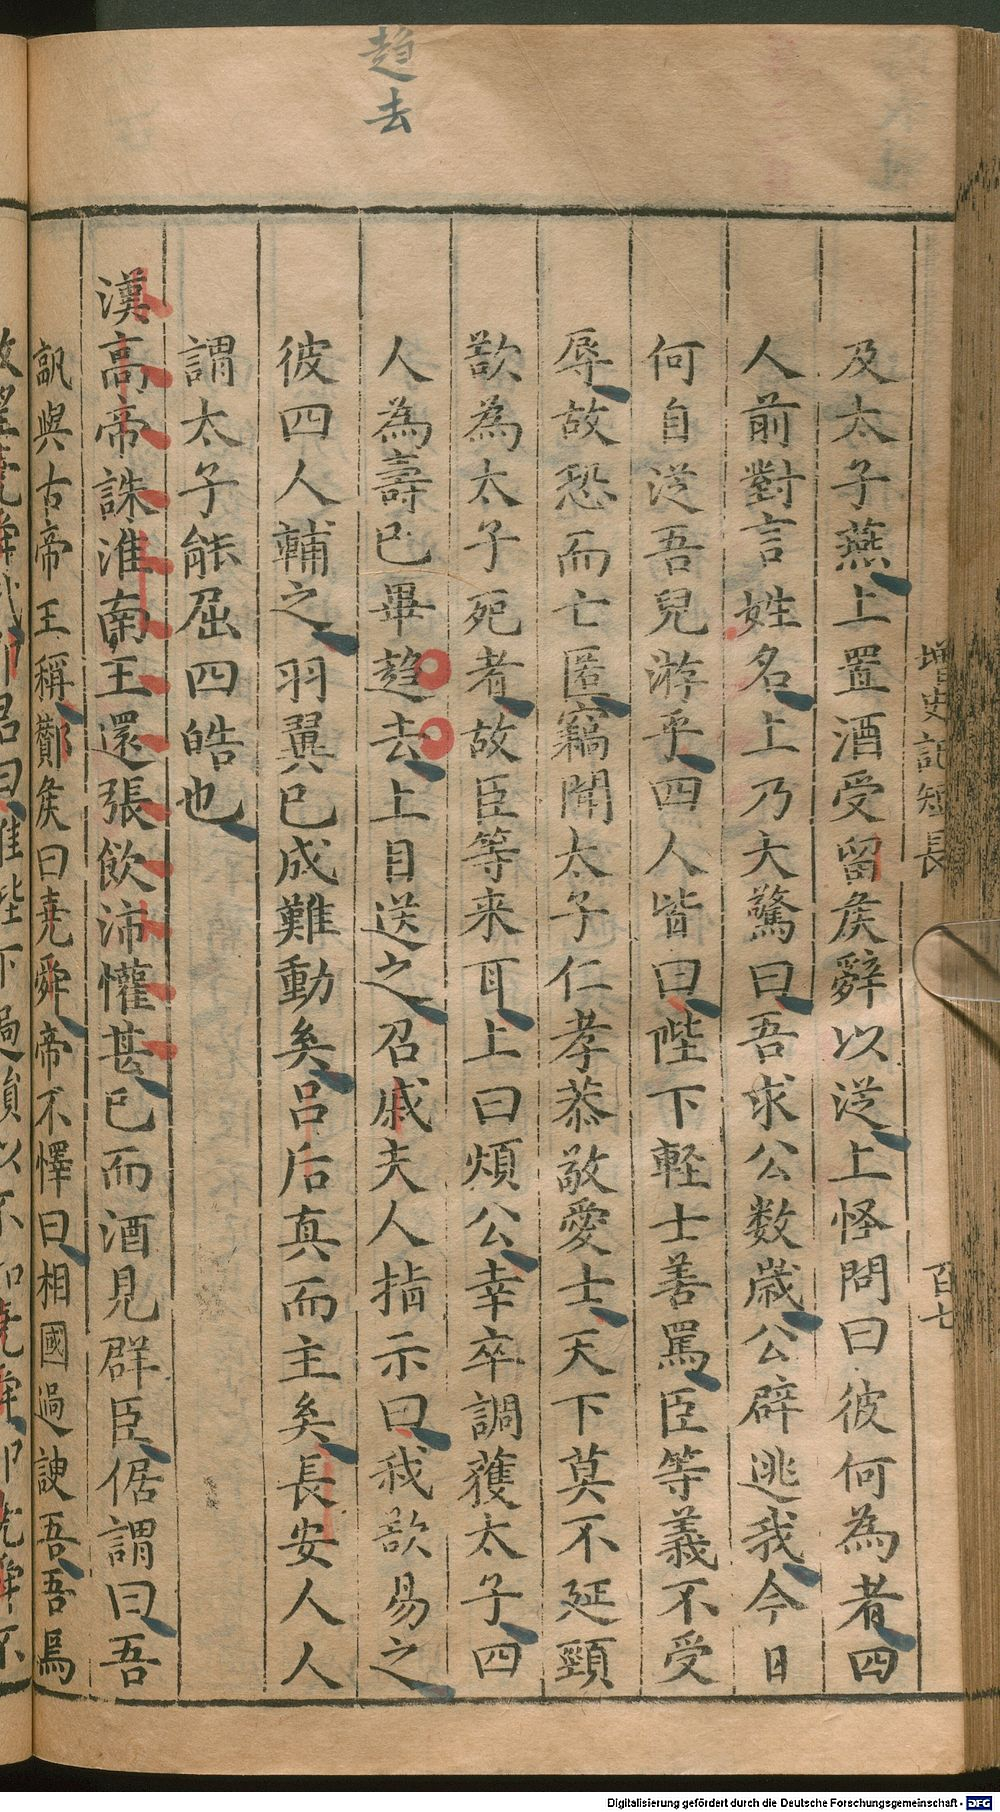 趋去
增史記短長
百七
及太子燕上置酒受留矦辭以從上怪問曰彼何為者四
人前對言姓名上乃大驚曰吾求公数歳公辟逃我今日
何自從吾兒游乎四人皆曰陛下軽士善罵臣等義不受
辱故恐而亡匿竊聞太子仁孝恭敬愛士天下莫不延頸
欲為太子死者故臣等来耳上曰煩公幸卒調獲太子四
人為壽已畢趋去上目送之召戚夫人指示曰我欲易之
彼四人輔之羽翼已成難動矣吕后真而主矣長安人人
謂太子能屈四皓也
漢高帝誅淮南王還張飲沛懽甚已而酒見群臣倨謂曰吾
訊與古帝王稱酇矦曰尭舜帝不懌曰相國過諛吾吾焉
Digitalisierung gefördert durch die Deutsche Forschungsgemeinschaft - DFG